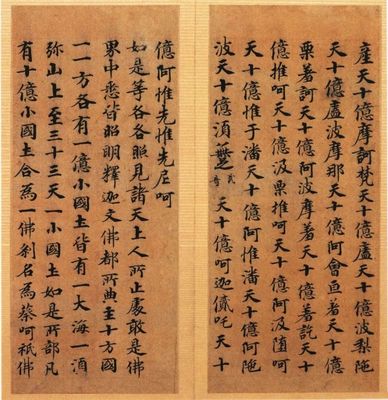 座天十億訶梵天十億廬天十億波梨陁
天十億盧波摩那天十億阿會亘者天十億
栗著訶天十億阿波摩着天十億著訖天十
億惟呵天十億汲栗惟呵天十億阿汲墮呵
天十億惟于潘天十億阿惟潘天十億阿陁
波天十億須 天十億呵迦貳吒天十
億阿惟先惟先尼呵
如是等各各照見諸天上人所止處敢是佛
界中悉皆照明釋迦文佛都所典主十方國
一一方各有一億小國土皆有一大海一酒
弥山上至三十三天一小國土如是所部凡
有十億小國土合為一佛刹名為蔡呵祇佛